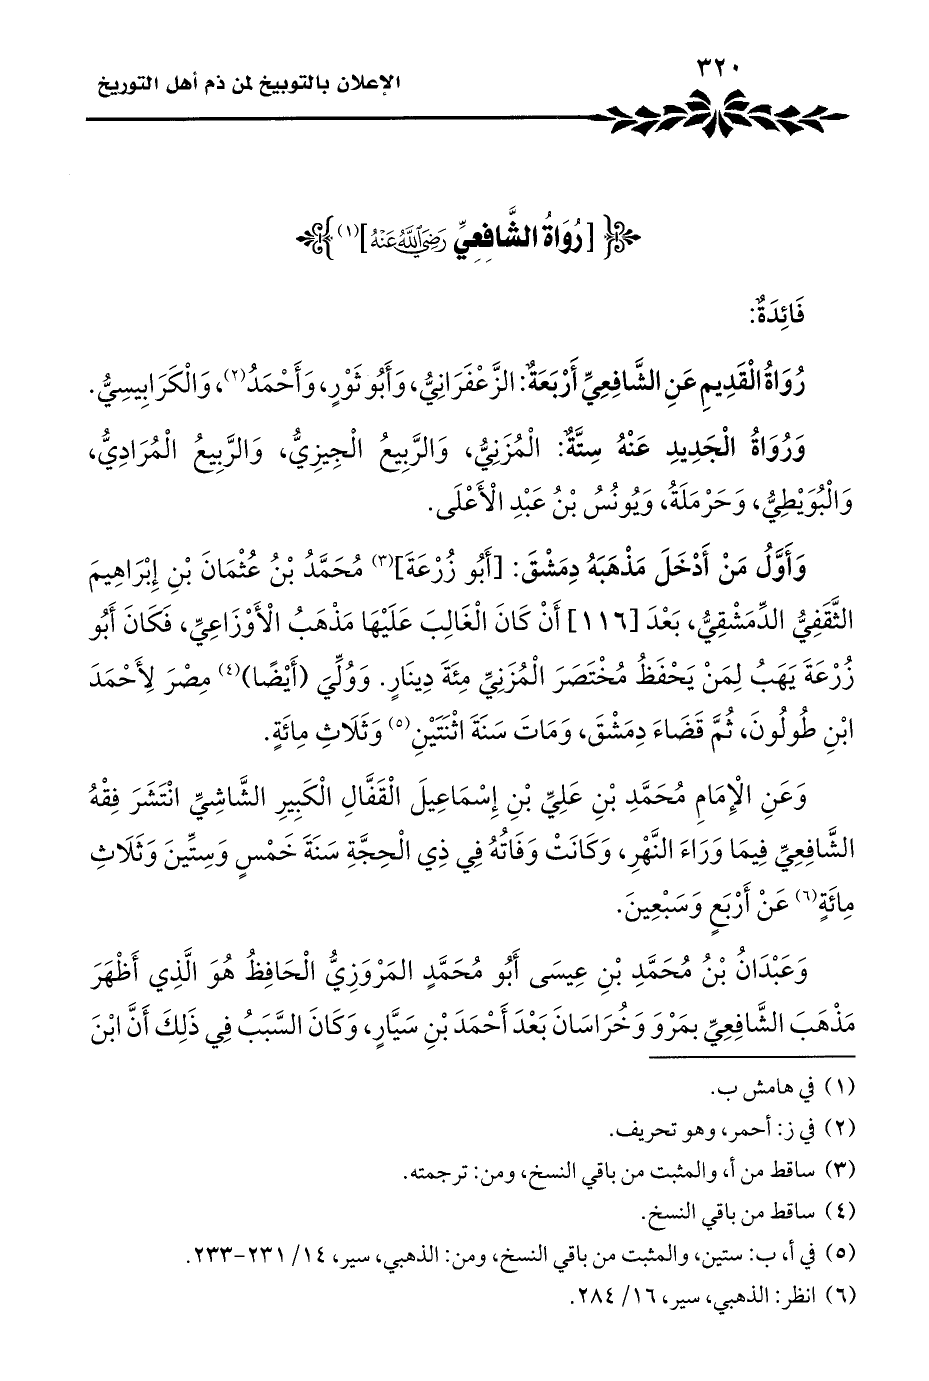 ٣٢٠
الإعلان بالتوبيخ لمن ذم أهل التوريخ
[رُوَاةُ الشَّافِعِيِّ رَضِيَ اللَّهُ عَنْهُ](١)
فَائِدَةٌ:
رُوَاةُ الْقَدِيمِ عَنِ الشَّافِعِيِّ أَرْبَعَةٌ: الزَّعْفَرَانِيُّ، وَأَبُو ثَوْرٍ، وَأَحْمَدُ(٢)، وَالْكَرَابِيسِيُّ.
وَرُوَاةُ الْجَدِيدِ عَنْهُ سِتَّةٌ: الْمُزَنِيُّ، وَالرَّبِيعُ الْجِيزِيُّ، وَالرَّبِيعُ الْمُرَادِيُّ،
وَالْبُوَيْطِيُّ، وَحَرْمَلَةُ، وَيُونُسُ بْنُ عَبْدِ الْأَعْلَى.
وَأَوَّلُ مَنْ أَدْخَلَ مَذْهَبَهُ دِمَشْقَ: [أَبُو زُرْعَةَ](٣) مُحَمَّدُ بْنُ عُثْمَانَ بْنِ إِبْرَاهِيمَ
الثَّقَفِيُّ الدِّمَشْقِيُّ، بَعْدَ [١١٦] أَنْ كَانَ الْغَالِبَ عَلَيْهَا مَذْهَبُ الْأَوْزَاعِيِّ، فَكَانَ أَبُو
زُرْعَةَ يَهَبُ لِمَنْ يَحْفَظُ مُخْتَصَرَ الْمُزَنِيِّ مِئَةَ دِينَارٍ. وَوُلِّيَ (أَيْضًا)(٤) مِصْرَ لِأَحْمَدَ
ابْنِ طُولُونَ، ثُمَّ قَضَاءَ دِمَشْقَ، وَمَاتَ سَنَةَ اثْنَتَيْنِ(٥) وَثَلَاثِ مِائَةٍ.
وَعَنِ الْإِمَامِ مُحَمَّدِ بْنِ عَلِيِّ بْنِ إِسْمَاعِيلَ الْقَفَّالِ الْكَبِيرِ الشَّاشِيِّ انْتَشَرَ فِقْهُ
الشَّافِعِيِّ فِيمَا وَرَاءَ النَّهْرِ، وَكَانَتْ وَفَاتُهُ فِي ذِي الْحِجَّةِ سَنَةَ خَمْسٍ وَسِتِّينَ وَثَلَاثِ
مِائَةٍ(٦) عَنْ أَرْبَعٍ وَسَبْعِينَ.
وَعَبْدَانُ بْنُ مُحَمَّدِ بْنِ عِيسَى أَبُو مُحَمَّدٍ المَرْوَزِيُّ الْحَافِظُ هُوَ الَّذِي أَظْهَرَ
مَذْهَبَ الشَّافِعِيِّ بِمَرْوَ وَخُرَاسَانَ بَعْدَ أَحْمَدَ بْنِ سَيَّارٍ، وَكَانَ السَّبَبُ فِي ذَلِكَ أَنَّ ابْنَ
(١) في هامش ب.
(٢) في ز: أحمر، وهو تحريف.
(٣) ساقط من أ، والمثبت من باقي النسخ، ومن: ترجمته.
(٤) ساقط من باقي النسخ.
(٥) في أ، ب: ستين، والمثبت من باقي النسخ، ومن: الذهبي، سير، ١٤/ ٢٣١-٢٣٣.
(٦) انظر: الذهبي، سير، ١٦/ ٢٨٤.